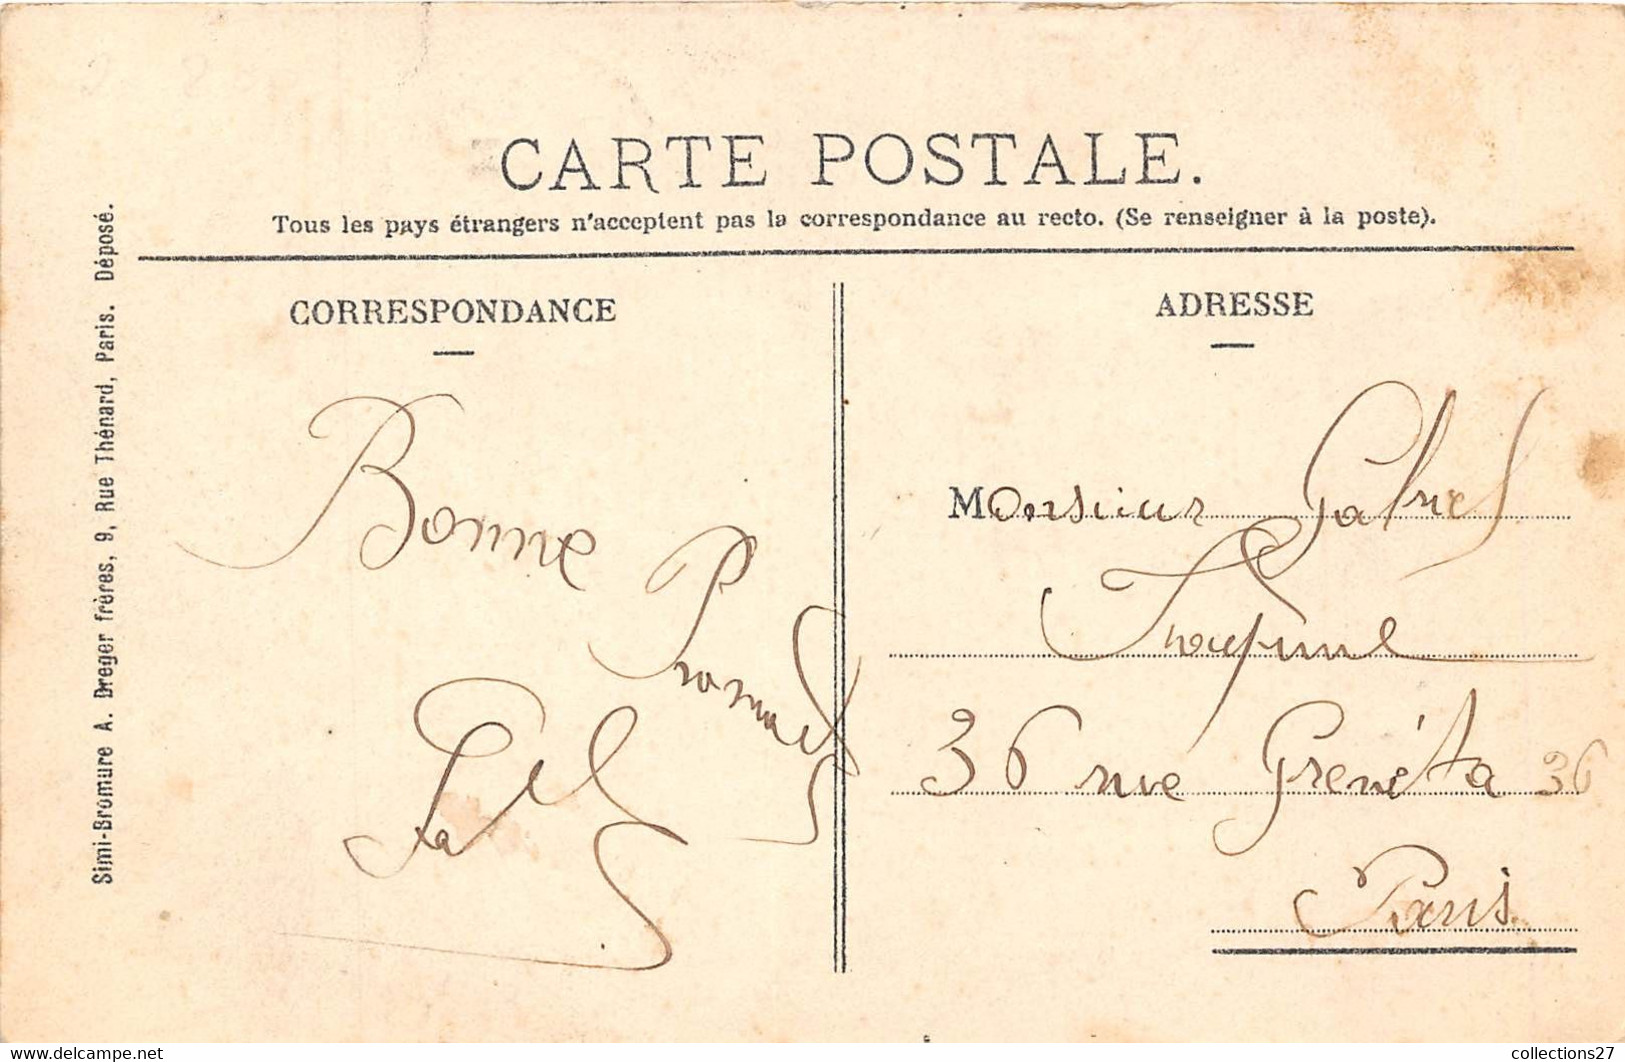 CARTE POSTALE.
Tous les pays étrangers n'acceptent pas la correspondance au recto. (Se renseigner à la poste).
Simi-Bromure A. Breger frères, 9, Rue Thénard, Paris. Déposé.
CORRESPONDANCE
Bonne
ADRESSE
Monsieur Gabriel
36 rue Grenéta 36
Paris
collections27